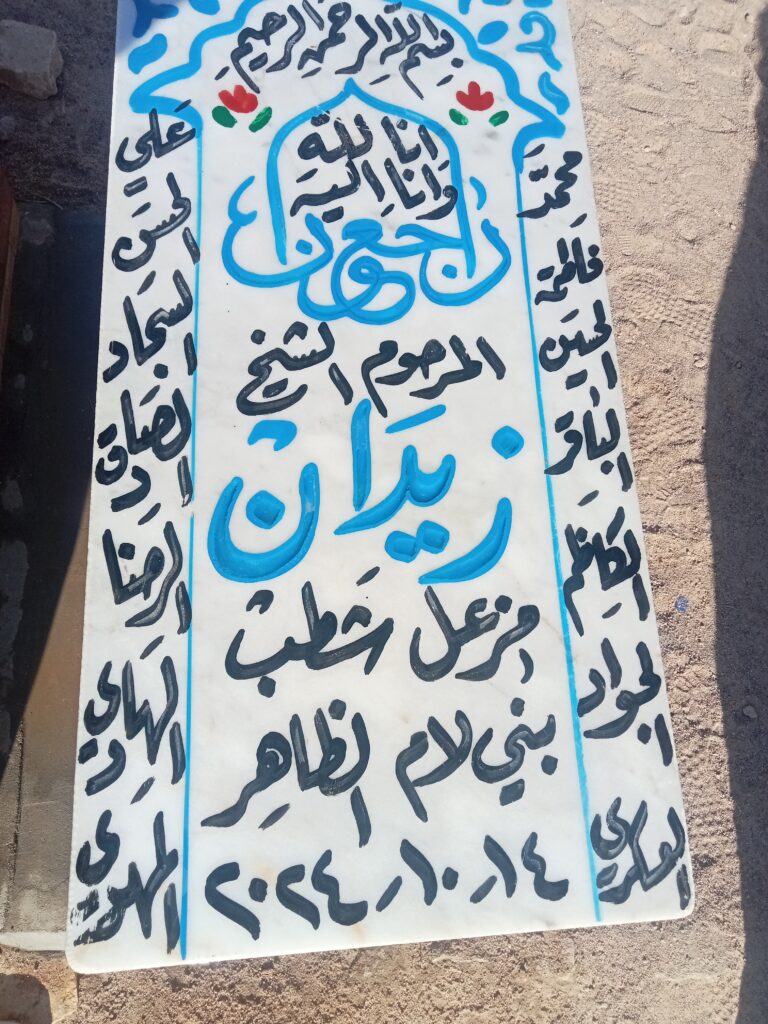 بسم الله الرحمن الرحيم
انا لله
وانا اليه
راجعون
المرحوم الشيخ
زيدان
مزعل شطب
بني لام الظاهر
١٤-١٠-٢٠٢٤
محمد
فاطمة
الحسين
الباقر
الكاظم
الجواد
العسكري
علي
الحسن
السجاد
الصادق
الرضا
الهادي
المهدي